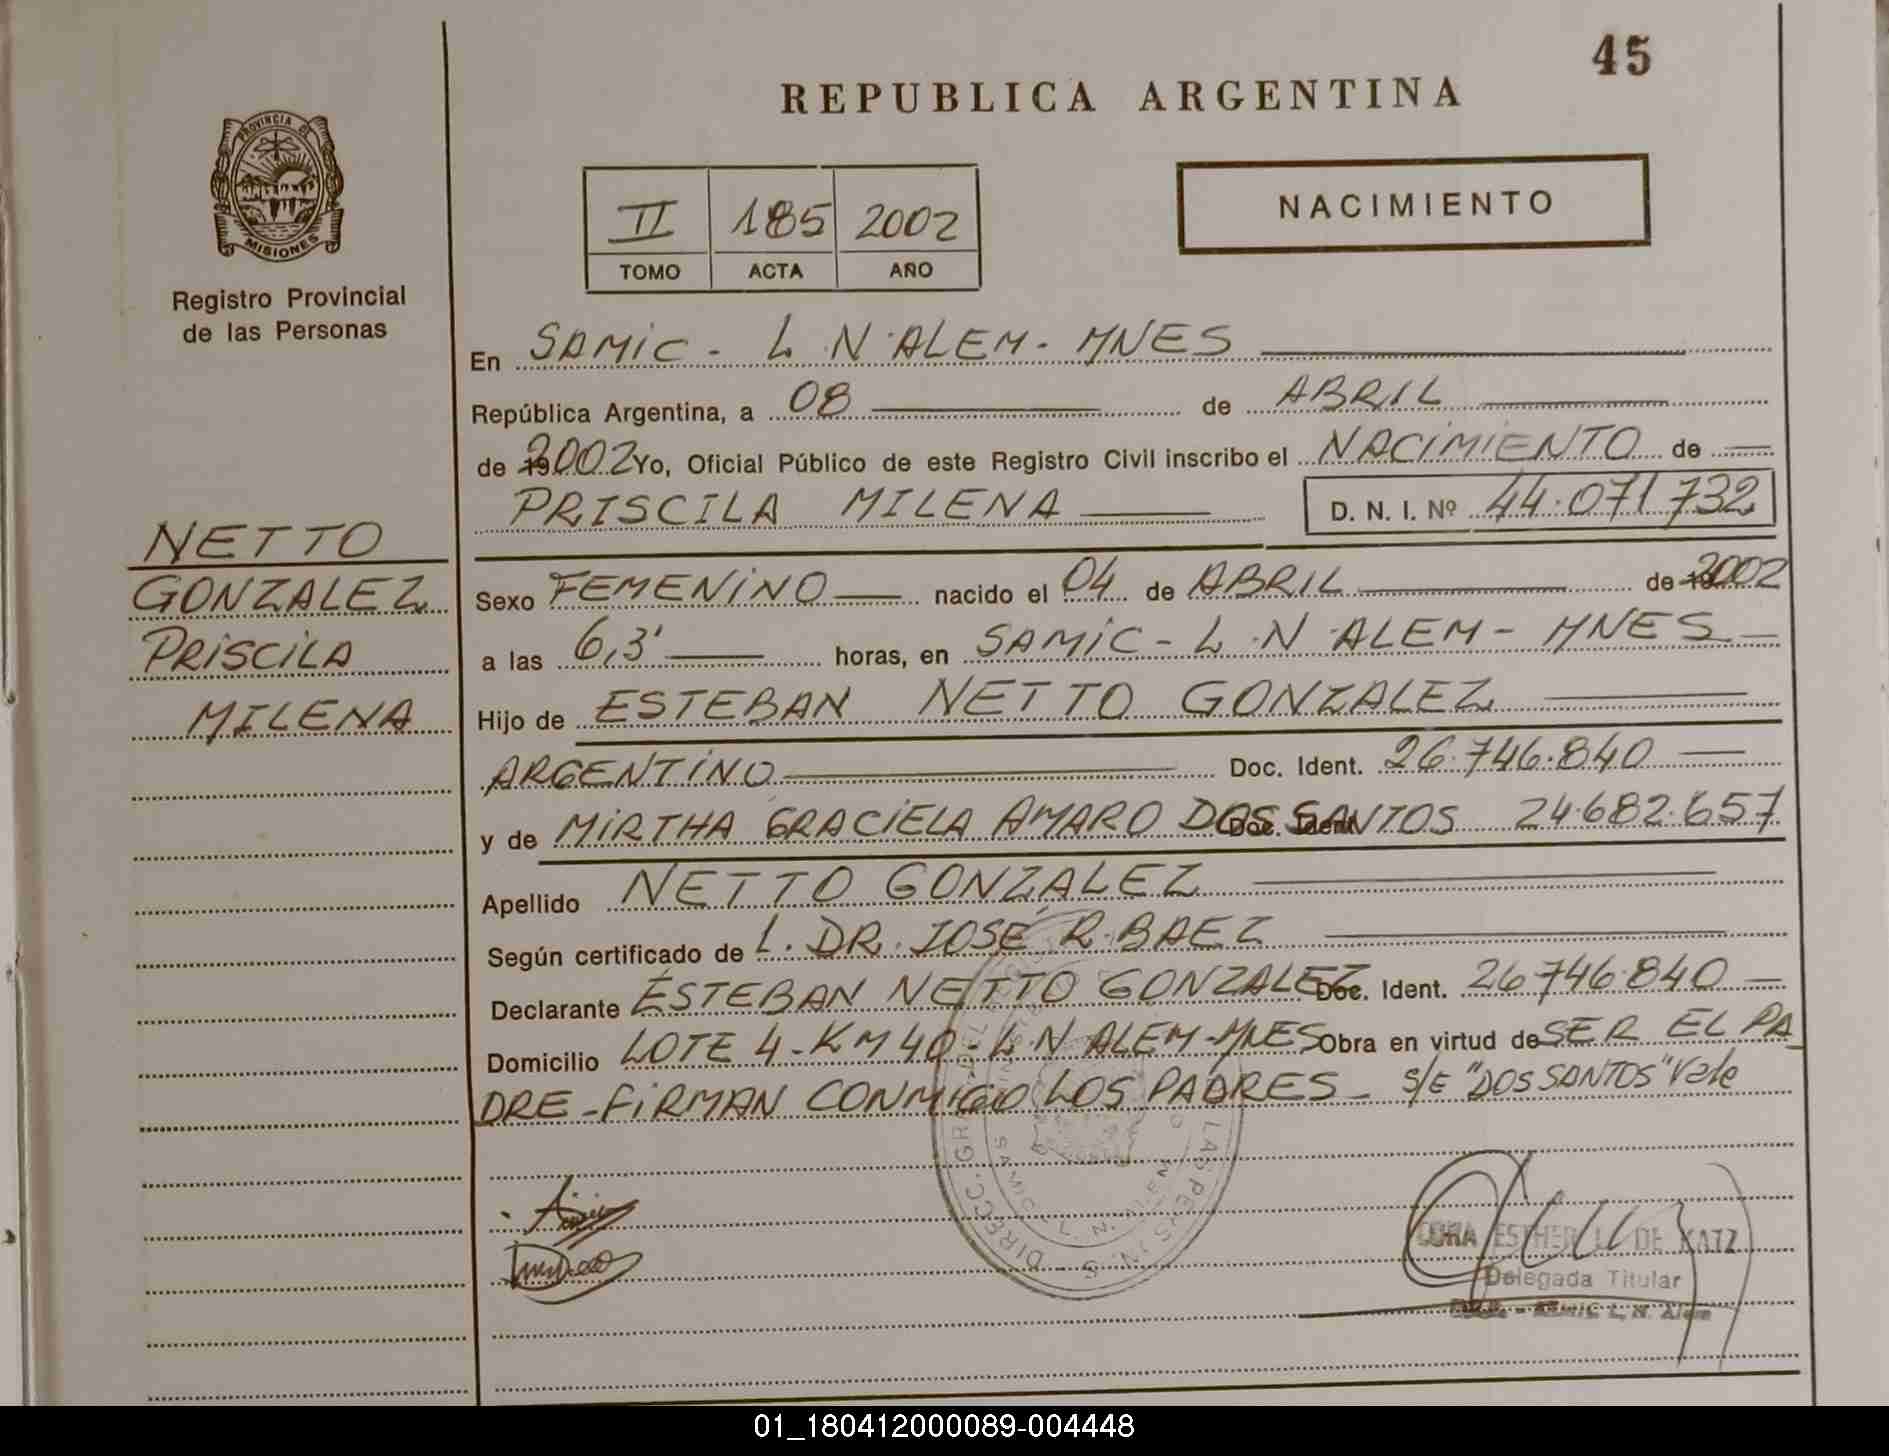 45
REPUBLICA ARGENTINA
PROVINCIA DE
MISIONES
Registro Provincial
de las Personas
II 185 2002
TOMO ACTA AÑO
NACIMIENTO
En SAMIC - L. N. ALEM - MNES
República Argentina, a 08 de ABRIL
de 2002 Yo, Oficial Público de este Registro Civil inscribo el NACIMIENTO de
PRISCILA MILENA D. N. I. Nº 44.071732
NETTO
GONZALEZ
PRISCILA
MILENA
Sexo FEMENINO nacido el 04 de ABRIL de 2002
a las 6,3' horas, en SAMIC - L. N. ALEM - MNES
Hijo de ESTEBAN NETTO GONZALEZ
ARGENTINO Doc. Ident. 26.746.840
y de MIRTHA GRACIELA AMARO DOS SANTOS Doc. Ident. 24.682.657
Apellido NETTO GONZALEZ
Según certificado de L. DR. JOSÉ R. BAEZ
Declarante ESTEBAN NETTO GONZALEZ Doc. Ident. 26746840
Domicilio LOTE 4 - KM 40 - L. N. ALEM - MNES Obra en virtud de SER EL PA
DRE - FIRMAN CONMIGO LOS PADRES - S/E "DOS SANTOS" Vale
DE KATZ
Delegada Titular
L. N. Alem
01_180412000089-004448